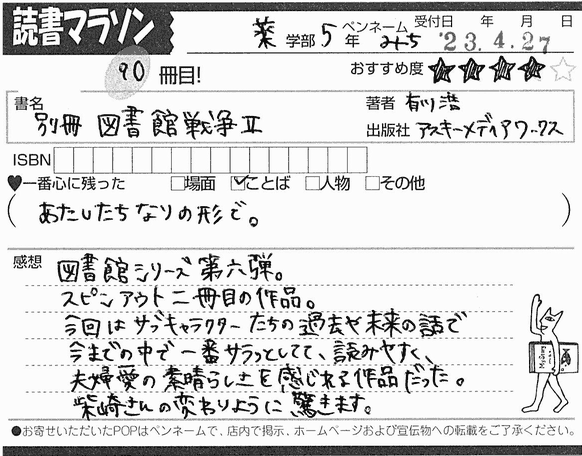 読書マラソン
薬 学部 5 年 ペンネーム みち 受付日 年 月 日 '23.4.27
90 冊目! おすすめ度 ★★★★☆
書名 別冊 図書館戦争Ⅱ
著者 有川浩
出版社 アスキーメディアワークス
ISBN
♥一番心に残った □場面 ☑ことば □人物 □その他
(あたしたちなりの形で。)
感想
図書館シリーズ第六弾。
スピンアウト二冊目の作品。
今回はサブキャラクターたちの過去や未来の話で
今までの中で一番サラっとしてて、読みやすく、
夫婦愛の素晴らしさを感じれる作品だった。
柴崎さんの変わりように驚きます。
●お寄せいただいたPOPはペンネームで、店内で掲示、ホームページおよび宣伝物への転載をご了承ください。